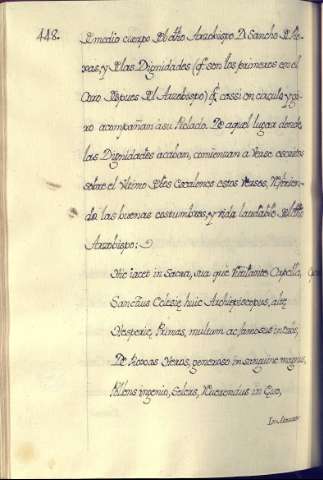 448.
El medio cuerpo del dho Arzobispo D. Sancho de Ro-
xas, y de las Dignidades (q̃ son los primeros en el
Coro despues del Arzobispo) q̃ cassi en circulo y gi-
ro acompañan à su Prelado. De aquel lugar donde
las Dignidades acaban, comienzan à verse escritos
sobre el ultimo de los escalones estos versos,
de las buenas costumbres, y vida laudable del dho
Arzobispo:
Hic iacet in Sacra, sua que Capella,
Sanctus Colesie huic Archiepiscopus, alte
Hesperie, Primas, multum ac famosus in
De Roxas Heros, generoso in sanguine magnus,
ingenio, Solers, in